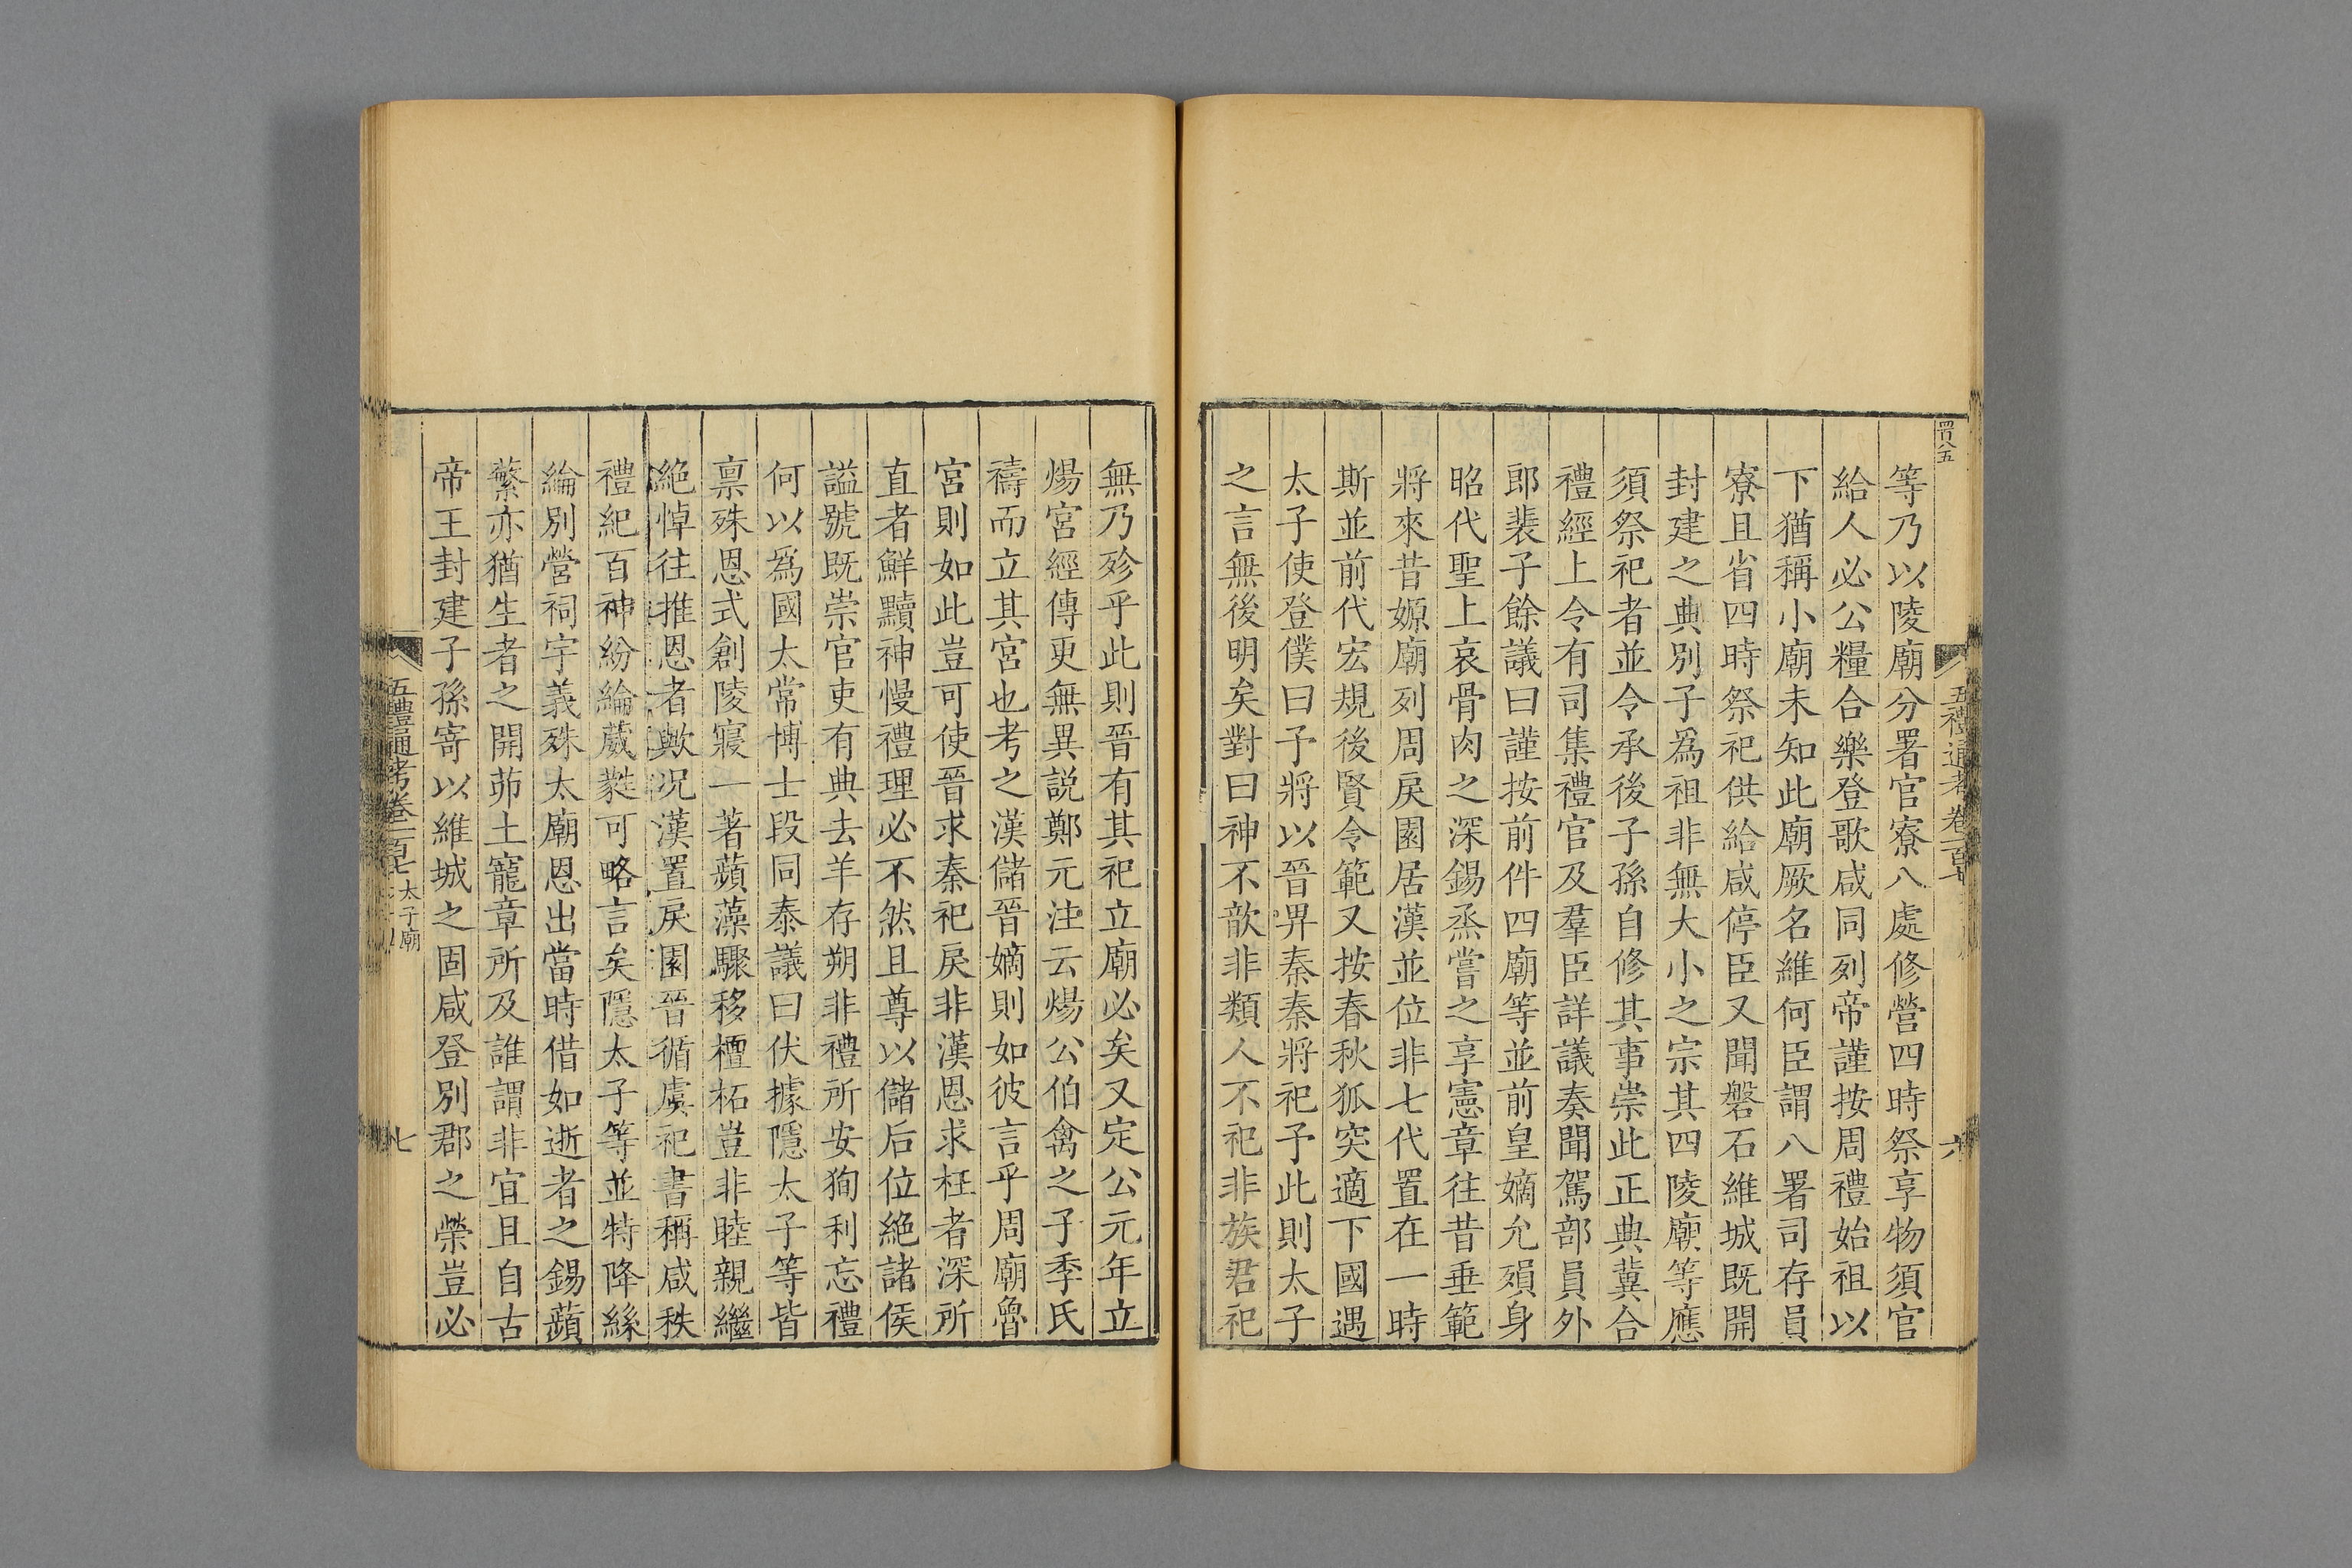 五禮通考卷一百七
六
等乃以陵廟分署官寮八處修營四時祭享物須官
給人必公糧合樂登歌咸同列帝謹按周禮始祖以
下猶稱小廟未知此廟厥名維何臣謂八署司存員
寮且省四時祭祀供給咸停臣又聞磐石維城既開
封建之典別子爲祖非無大小之宗其四陵廟等應
須祭祀者並令承後子孫自修其事崇此正典冀合
禮經上令有司集禮官及羣臣詳議奏聞駕部員外
郎裴子餘議曰謹按前件四廟等並前皇嫡允殞身
昭代聖上哀骨肉之深錫烝嘗之享憲章往昔垂範
將來昔嫄廟列周戾園居漢並位非七代置在一時
斯並前代宏規後賢令範又按春秋狐突適下國遇
太子使登僕曰予將以晉畀秦秦將祀予此則太子
之言無後明矣對曰神不歆非類人不祀非族君祀
無乃殄乎此則晉有其祀立廟必矣又定公元年立
煬宮經傳更無異説鄭元注云煬公伯禽之子季氏
禱而立其宮也考之漢儲晉嫡則如彼言乎周廟魯
宮則如此豈可使晉求秦祀戾非漢恩求枉者深所
直者鮮黷神慢禮理必不然且尊以儲后位絶諸侯
謚號既崇官吏有典去羊存朔非禮所安狥利忘禮
何以爲國太常博士段同泰議曰伏據隱太子等皆
禀殊恩式創陵寢一著蘋藻驟移檀柘豈非睦親繼
絶悼往推恩者歟况漢置戾園晉循虞祀書稱咸秩
禮紀百神紛綸葳蕤可略言矣隱太子等並特降絲
綸別營祠宇義殊太廟恩出當時借如逝者之錫蘋
蘩亦猶生者之開茆土寵章所及誰謂非宜且自古
帝王封建子孫寄以維城之固咸登別郡之榮豈必
五禮通考卷一百七 太子廟
七